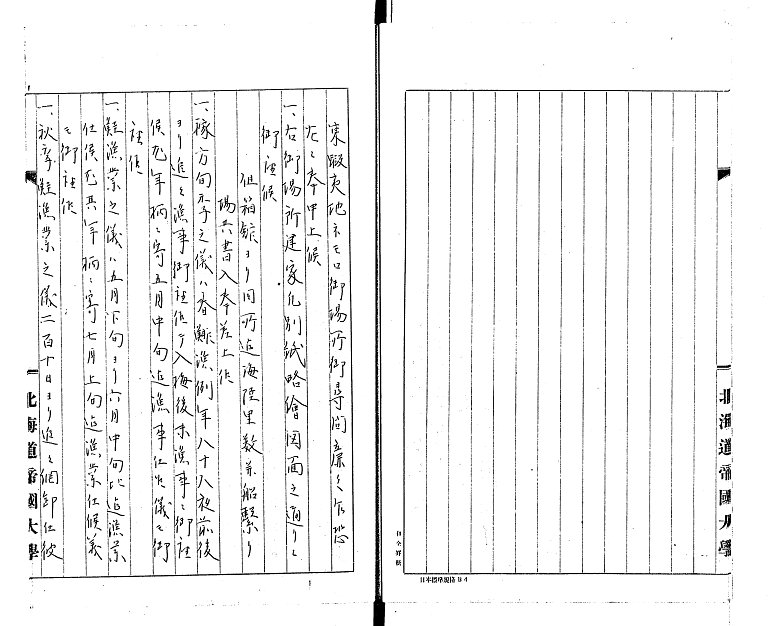 東蝦夷地子モロ御場所御尋問廉々乍恐
左ニ奉申上候
一、右御場所建家凡別紙略繪図面之通りニ
御座候
但箱館ヨリ同所迄海陸里数并船繋り
場共書入奉差上候
一、稼方旬季之儀ハ春鯡漁例年八十八夜前後
ヨリ追々漁事御座候而入梅後末漁事ニ御座
候尤年柄ニ寄五月中旬迄漁事仕候儀モ御
座候
一、鮭漁業之儀ハ五月下旬ヨリ六月中旬比迄漁業
仕候尤其年柄ニ寄七月上旬迄漁業仕候義
モ御座候
一、秋季鮭漁業之儀二百十日ヨリ追々網卸仕彼
北海道帝國大學
北海道帝國大學
日本標準規格B4